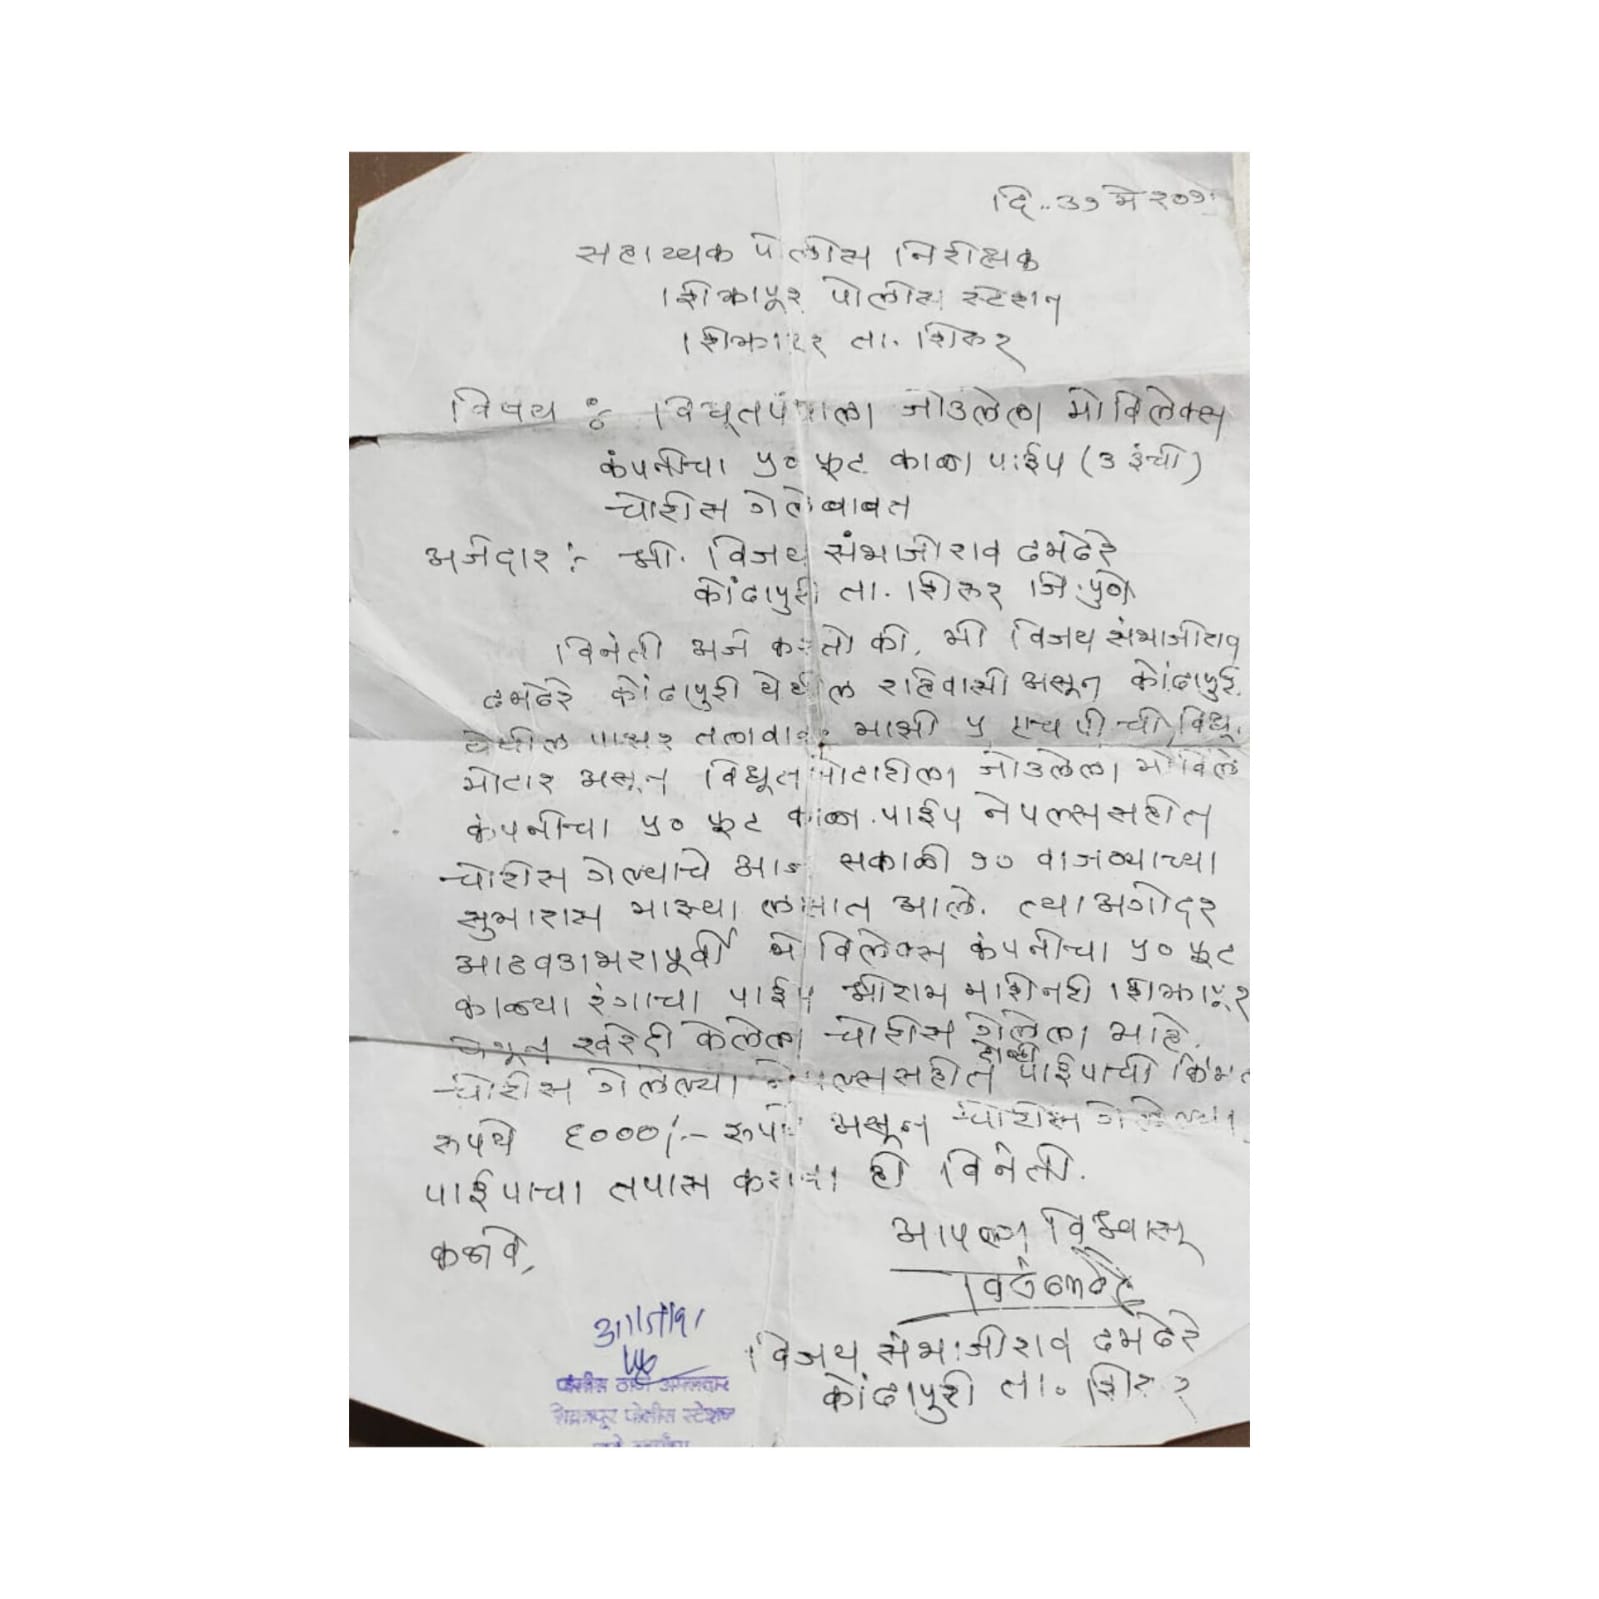 दि..३१ मे २०१
सहाय्यक पोलीस निरीक्षक
शिक्रापूर पोलीस स्टेशन
शिक्रापूर ता. शिरूर
विषय : विद्यूतपंपाला जोडलेला मोविलेक्स
कंपनीचा ५० फूट काळा पाईप (३ इंची)
चोरीस गेलेबाबत
अर्जदार :- श्री. विजय संभाजीराव ढमढेरे
कोंढापुरी ता. शिरूर जि.पुणे
विनंती अर्ज करतो की, मी विजय संभाजीराव
ढमढेरे कोंढापुरी येथील राहिवासी असून कोंढापुरी
येथील पाझर तलावावर माझी ५ एच पी ची विद्यू
मोटार असून विद्यूतमोटारीला जोडलेला मोविले
कंपनीचा ५० फूट काळा पाईप नेपलससहीत
चोरीस गेल्याचे आज सकाळी १० वाजण्याच्या
सुमारास माझ्या लक्षात आले. त्या अगोदर
आठवडाभरापूर्वी मोविलेक्स कंपनीचा ५० फूट
काळ्या रंगाचा पाईप श्रीराम मशिनरी शिक्रापूर
येथून खरेदी केलेला चोरीस गेलेला आहे.
चोरीस गेलेल्या नेपल्ससहीत पाईपाची किंमत
रुपये ६०००/- रूपये असून चोरीस गेलेल्या
पाईपाचा तपास करावा ही विनंती.
कळावे,
आपला विश्वासू
विजय संभाजीराव ढमढेरे
कोंढापुरी ता. शिरूर
पोलीस ठाणे अंमलदार
शिक्रापूर पोलीस स्टेशन